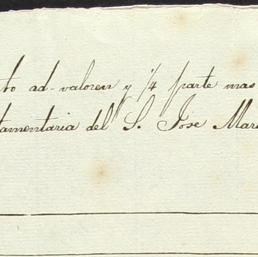 to ad-valoren y 1/4 parte mas
tamentaria del S. Jose Mar